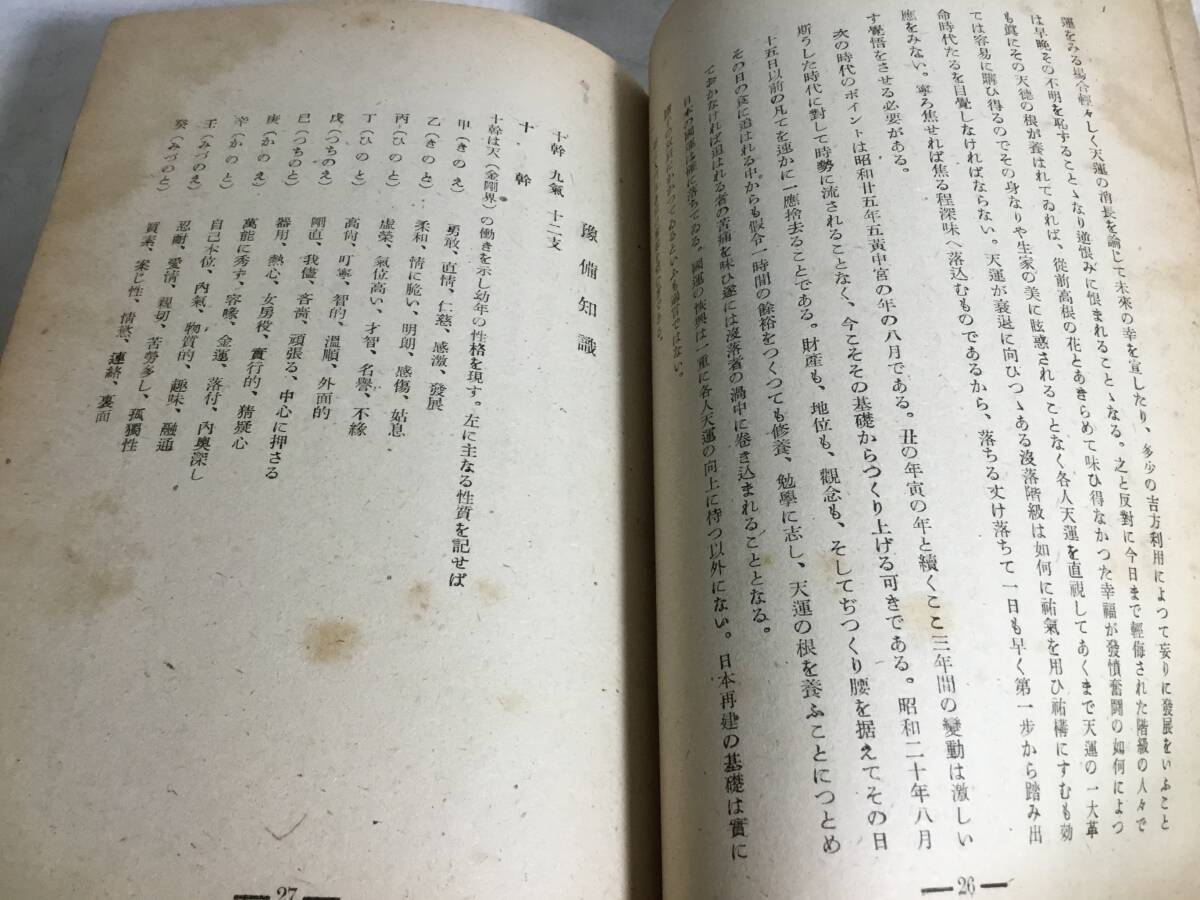 運をみる場合輕々しく天運の消長を論じて未來の幸を宣したり、多少の吉方利用によつて妄りに發展をいふこと
は早晩その不明を恥することゝなり逆恨みに恨まれることゝなる。之と反對に今日まで輕侮された階級の人々で
も眞にその天德の根が養はれてゐれば、從前高根の花とあきらめて味ひ得なかつた幸福が發憤奮鬪の如何によつ
ては容易に購ひ得るのでその身なりや生家の美に眩惑されることなく各人天運を直視してあくまで天運の一大革
命時代たるを自覺しなければならない。天運が衰退に向ひつゝある沒落階級は如何に祐氣を用ひ祐橫にすむも効
應をみない。寧ろ焦せれば焦る程深味へ落込むものであるから、落ちる丈け落ちて一日も早く第一步から踏み出
す覺悟をさせる必要がある。
次の時代のポイントは昭和廿五年五黃中宮の年の八月である。丑の年寅の年と續くここ三年間の變動は激しい
斯うした時代に對して時勢に流されることなく、今こそその基礎からつくり上げる可きである。昭和二十年八月
十五日以前の凡てを速かに一應捨去ることである。財產も、地位も、觀念も、そしてぢつくり腰を据えてその日
その日の食に追はれる中からも假令一時間の餘裕をつくつても修養、勉學に志し、天運の根を養ふことにつとめ
ておかなければ追はれる者の苦痛を味ひ遂には沒落者の渦中に卷き込まれることとなる。
日本の國運は確に落ちてゐる。國運の恢興は一重に各人天運の向上に待つ以外にない。日本再建の基礎は實に
—26—
豫備知識
十幹 九氣 十二支
十幹
十幹は天(金剛界)の働きを示し幼年の性格を現す。左に主なる性質を記せば
甲(きのえ) 勇敢、直情、仁慈、感激、發展
乙(きのと) 柔和、情に脆い、明朗、感傷、姑息
丙(ひのと) 虛榮、氣位高い、才智、名譽、不緣
丁(ひのと) 高尙、叮寧、智的、溫順、外面的
戊(つちのえ) 剛直、我儘、吝嗇、頑張る、中心に押さる
巳(つちのと) 器用、熱心、女房役、實行的、猜疑心
庚(かのえ) 萬能に秀ず、容喙、金運、落付、內奧深し
辛(かのと) 自己本位、內氣、物質的、趣味、融通
壬(みづのえ) 忍耐、愛情、親切、苦勞多し、孤獨性
癸(みづのと) 質素、案じ性、情慾、連絡、裏面
—27—